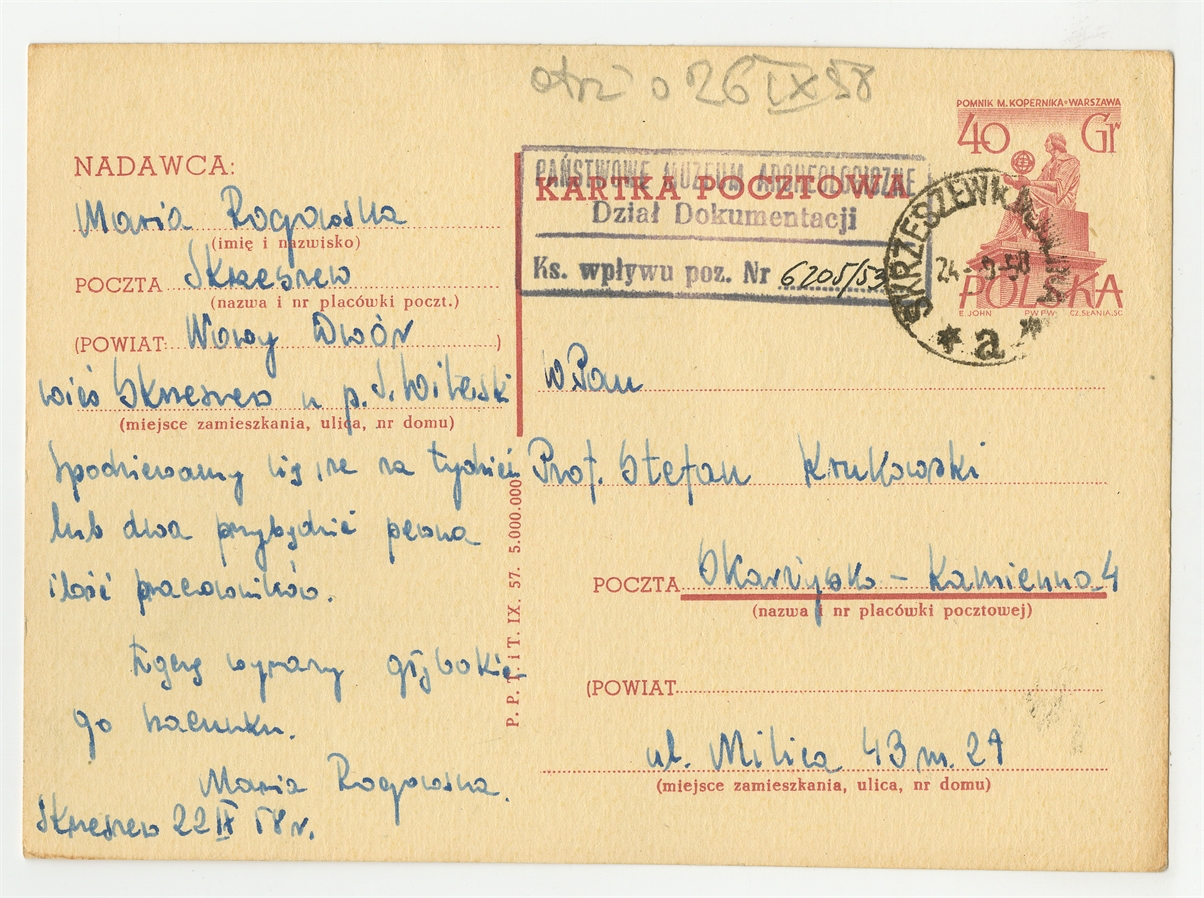 otrz o 26 IX 58
POMNIK M. KOPERNIKA • WARSZAWA
40 Gr
POLSKA
E. JOHN PWPW. CZ. SŁANIA, SC
24-9-58
* a *
PAŃSTWOWE MUZEUM ARCHEOLOGICZNE
KARTKA POCZTOWA
Dział Dokumentacji
Ks. wpływu poz. Nr 6205/53
NADAWCA:
Maria Rogowska
(imię i nazwisko)
POCZTA Skrzeszew
(nazwa i nr placówki poczt.)
(POWIAT Nowy Dwór )
wieś Skrzeszew u p. J.
(miejsce zamieszkania, ulica, nr domu)
Spodziewamy się, że za tydzień
lub dwa przybędzie pewna
ilość pracowników.
Łączę wyrazy głębokie
go szacunku.
Maria Rogowska.
Skrzeszew 22 IX 58 r.
P. P. T. i T. IX. 57. 5.000.000
WPan
Prof. Stefan Krukowski
POCZTA Skarżysko - Kamienna 4
(nazwa i nr placówki pocztowej)
(POWIAT
ul. Milica 43 m. 27
(miejsce zamieszkania, ulica, nr domu)